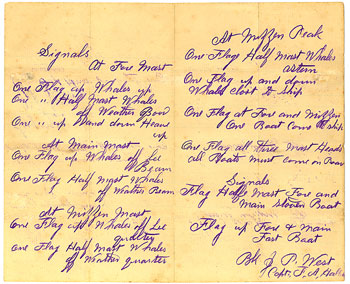 Signals
At Fore Mast
One Flag up Whales up
One " Half Mast Whales
off Weather Bow
One " up and down Heave
up
At Main Mast
One Flag up Whales off Lee
Beam
One Flag Half mast Whales
off Weather Beam
At Mizzen Mast
One Flag up Whales off Lee
quarter
One Flag Half Mast Whales
off Weather quarter
At Mizzen Peak
One Flag Half Mast Whales
astern
One Flag up and down
Whales Close to Ship
One Flag at Fore and Mizzen
One Boat Come to ship
One Flag all three Mast Heads
all Boats must come on Board
Signals
Flag Half Mast Fore and
Main Stoven Boat
Flag up Fore & Main
Fast Boat
J. P. West
Capt. F. A.